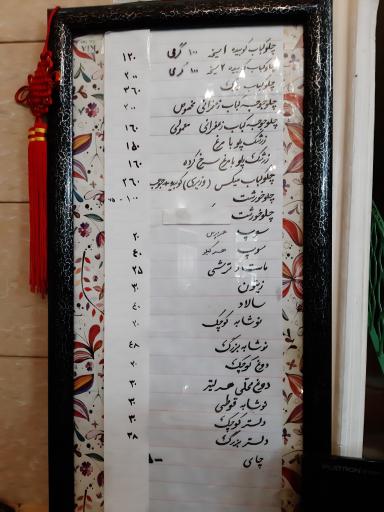 چلوکباب کوبیده ۱ سیخ ۱۰۰ گرمی ۱۲۰
چلوکباب کوبیده ۲ سیخ ۱۰۰ گرمی ۲۰۰
چلوکباب ۳۶۰
چلوجوجه کباب زعفرانی مخصوص ۲۰۰
چلوجوجه کباب زعفرانی معمولی ۱۶۰
زرشک پلو با مرغ ۱۵۰
زرشک پلو با مرغ سرخ کرده ۱۶۰
چلوکباب میکس (وزیری) کوبیده و جوجه ۲۶۰
چلوخورشت ۱۰۰
چلوخورشت
سوپ سرویس ۲۰
سوپ ۴۰
ماست و ترشی ۲۵
زیتون ۳۰
سالاد ۴۰
نوشابه کوچک ۲۰
نوشابه بزرگ ۴۸
دوغ کوچک ۲۰
دوغ محلی ۳۰
نوشابه قوطی ۳۰
دلستر کوچک ۳۰
دلستر بزرگ ۳۸
چای ۸۰